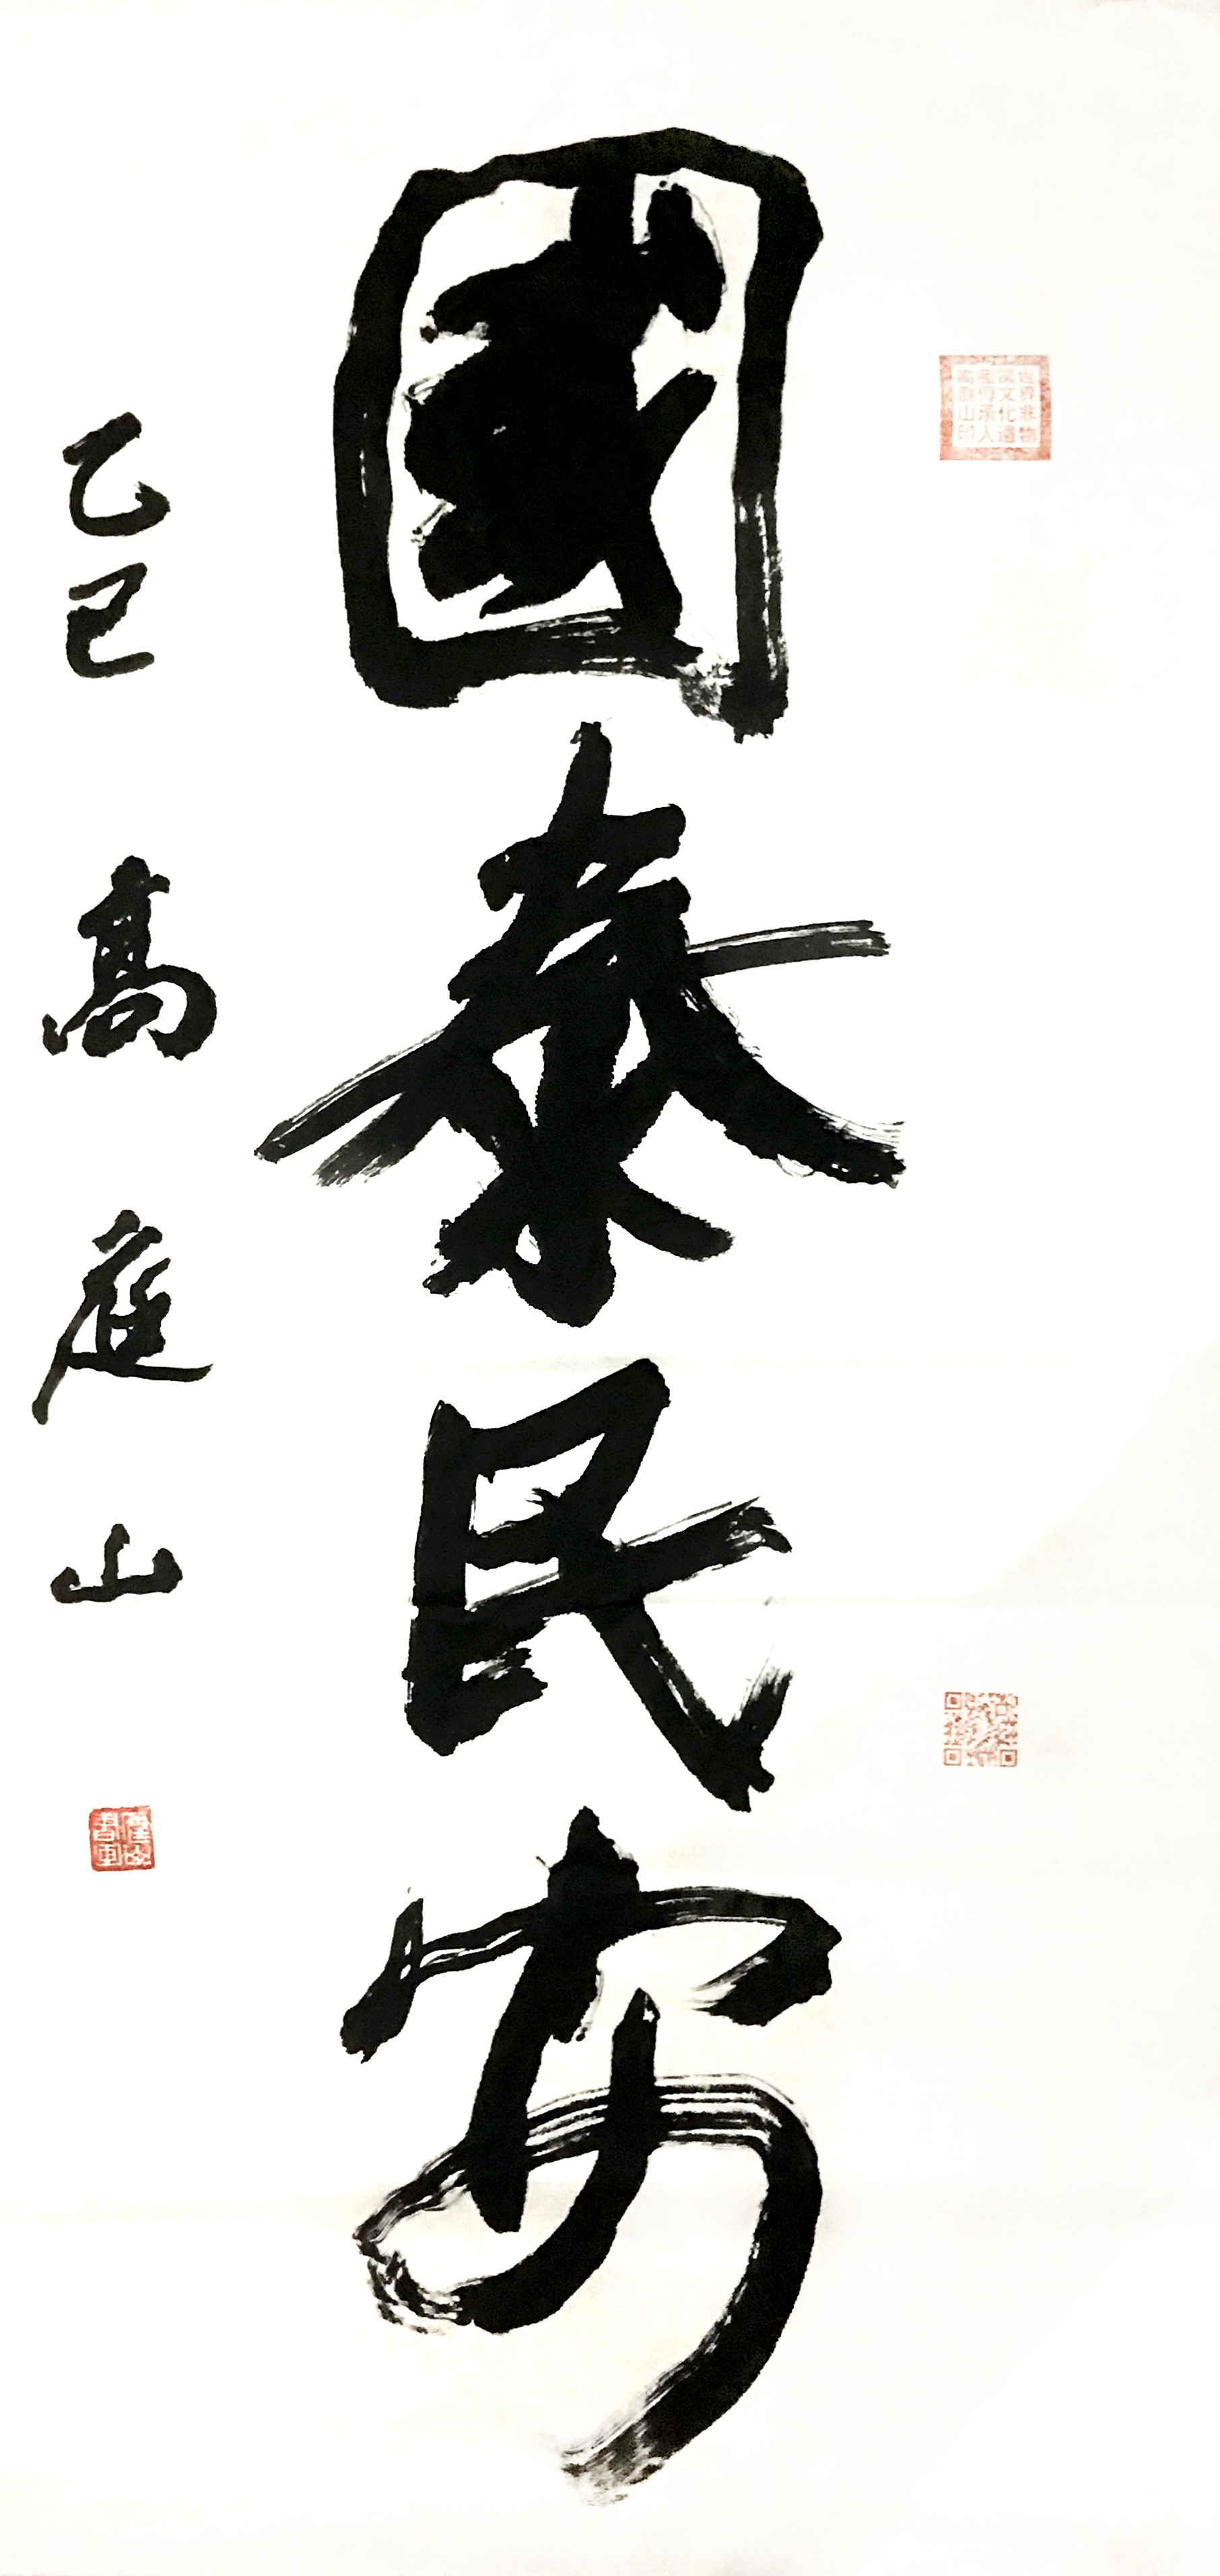 國泰民安
乙巳 高庭山
世界非物
遺文化遺
產傳承人
高庭山印